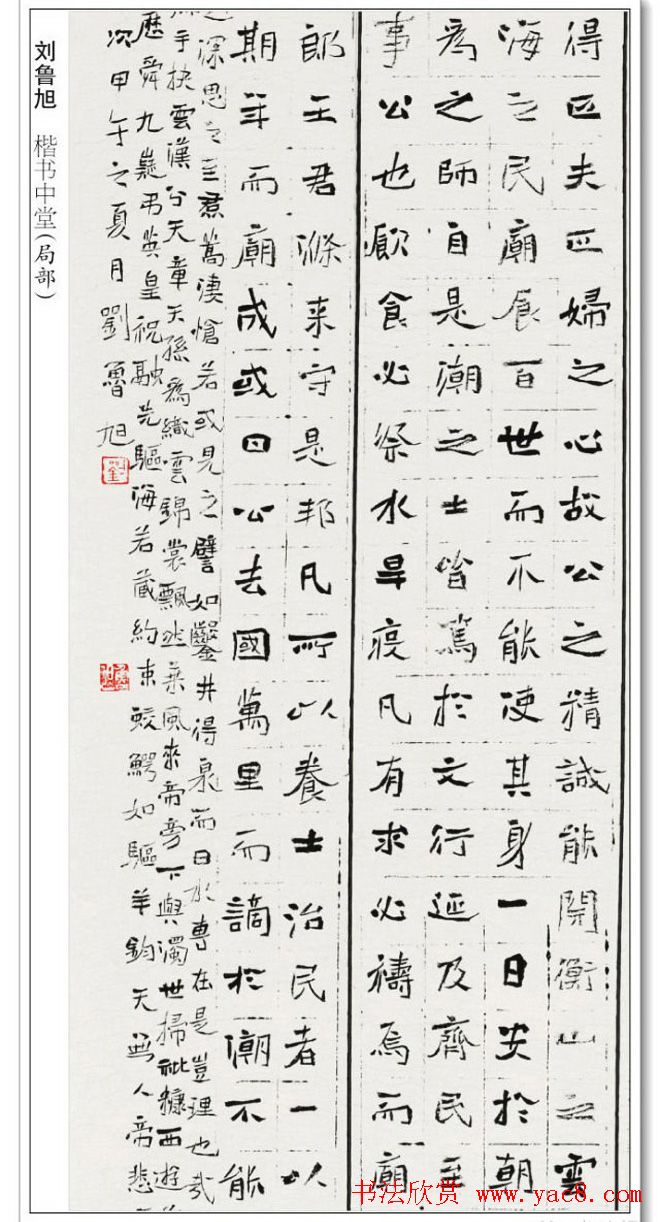 得匹夫匹婦之心故公之精誠能開衡山之雲
海之民廟食百世而不能使其身一日安於朝
為之師自是潮之士皆篤於文行延及齊民至
事公也飲食必祭水旱疫凡有求必禱焉而廟
郎王君滌来守是邦凡所以養士治民者一以
期年而廟成或曰公去國萬里而謫於潮不能
之深思之至焄蒿凄愴若或見之譬如鑿井得泉而曰水專在是豈理也哉
手抉雲漢分天章天孫為織雲錦裳飄然乘風來帝旁下與濁世掃秕糠西遊
歷舜九嶷弔英皇祝融先驅海若藏約束蛟鱷如驅羊鈞天無人帝悲
次甲午之夏月劉魯旭
刘鲁旭 楷书中堂(局部)
书法欣赏 www.yac8.com